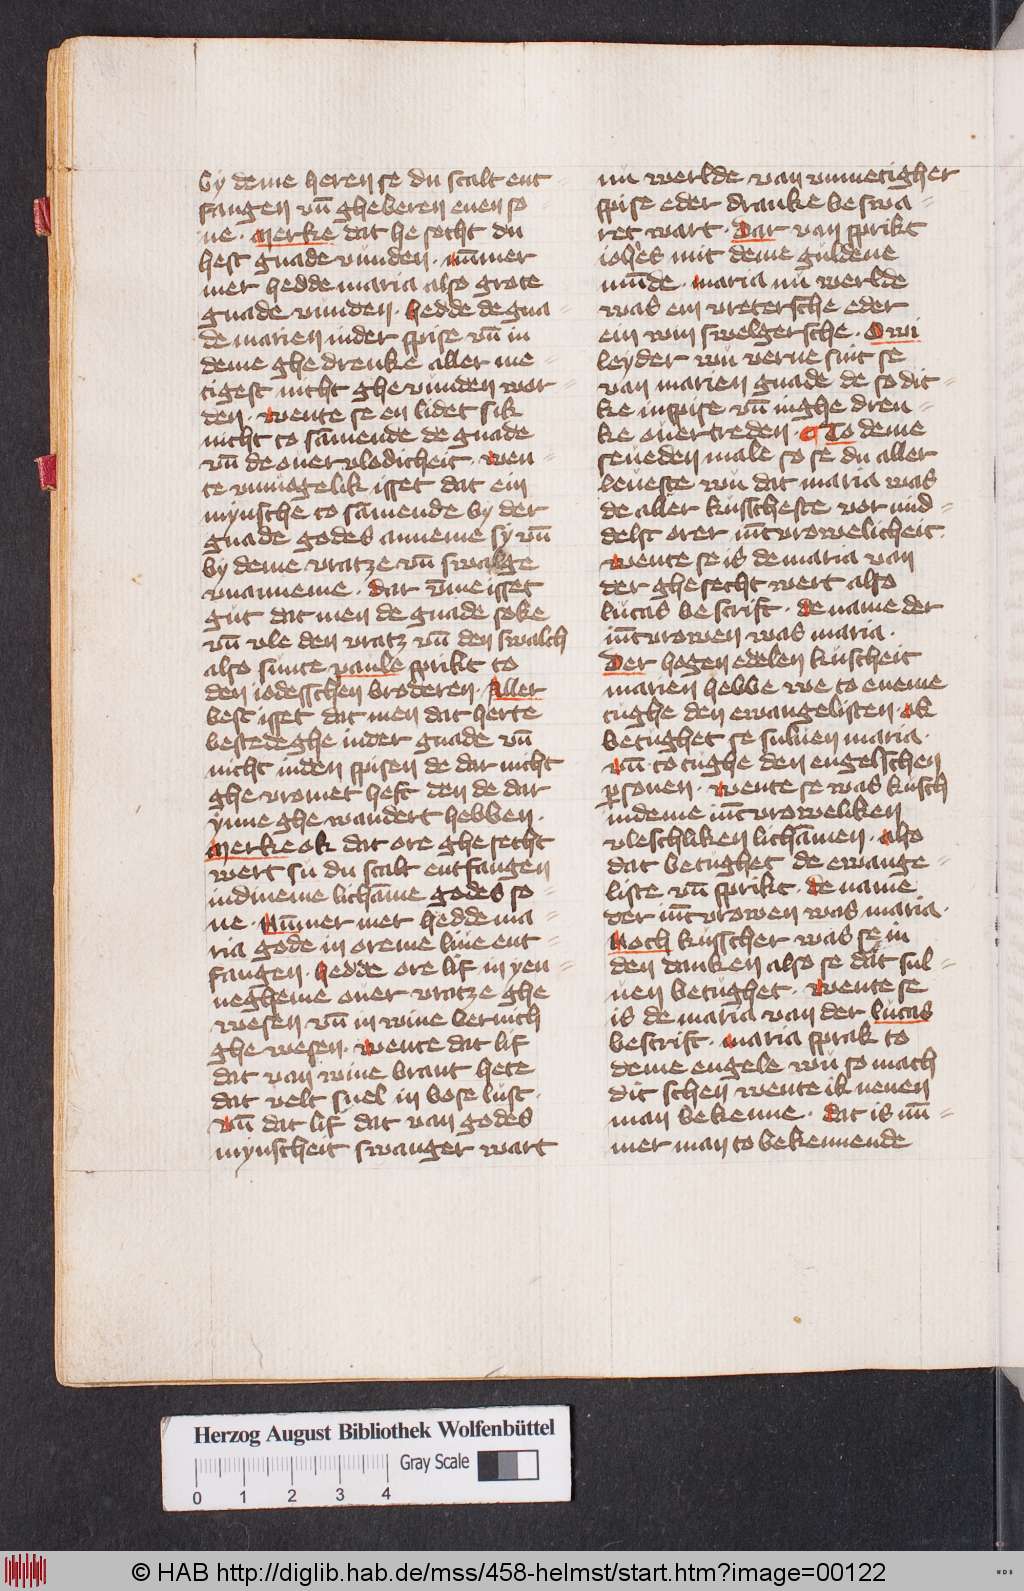 by deme heren se du scalt ent=
fangen vn̄ gheberen enen so
ne. Merke dat he secht du
hest gnade vunden. nūmer
mer hedde maria also grote
gnade vunden. hedde de gna=
de marien in der spise vn̄ in
deme ghedrenke aller me=
tigest nicht ghevunden wor=
den. wente se en lidet sik
nicht to sāmende de gnade
vn̄ de overvlodicheit. wen=
te vnmogelik isset dat ein
mynsche to sāmende by der
gnade godes anneme sy vn̄
by deme vratze vn̄ swalge
vnanneme. Dar v̄me isset
gut dat men de gnade soke
vn̄ vle den vratz vn̄ den swalch
also sunte paule sprikt to
den iodesschen broderen. Aller
best isset dat men dat herte
bestedeghe in der gnade vn̄
nicht in den spisen de dar nicht
ghevromet heft den de dar
ynne ghewandert hebben.
Merke ok dat ore ghesecht
wert su du scalt entfangen
in dineme lichāme godes so=
ne. Nūmer mer hedde ma=
ria gode in oreme live ent=
fangen. hedde ore lif in yen=
negheme over vratze ghe
wesen vn̄ in wine bernich
ghewesen. wente dat lif
dat van wine brant hete
dat velt snel in bose lust.
vn̄ dat lif dat van godes
mynscheit swanger wart
nu werlde van vnmetigher
spise eder dranke beswa=
ret wart. Dar van sprikt
ioh̄es mit deme guldene
mūde. maria nu werlde
was ein vretersche eder
ein win swelgersche. Owi
leyder wu verne sint se
van marien gnade de so dit=
ke in spise vn̄ in ghedren=
ke overtreden. ¶ To deme
seveden male so se du aller
leveste wu dat maria was
de aller kusscheste vormid=
delst orer iūcvrowelicheit.
wente se is de maria van
der ghesecht wert also
lucas bescrift. de name der
iūcvrowen was maria.
Der hogen edelen kuscheit
marien hebbe we to eneme
tughe den ewangelisten. ok
betughet se sulven maria.
vn̄ to tughe den engelschen
ꝑsonen. wente se was kusch
in deme iūcvroweliken
vleschliken lichāmen. also
dat betughet de ewange=
liste vn̄ sprikt. de name
der iūcvrowen was maria.
Noch kusscher was se in
den danken also se dat sul=
ven betughet. wente se
is de maria van der lucas
bescrift. maria sprak to
deme engele wu so mach
dit schen wente ik nenen
man bekenne. Dat is nū=
mer man to bekennende
Herzog August Bibliothek Wolfenbüttel
Gray Scale
0 1 2 3 4
© HAB http://diglib.hab.de/mss/458-helmst/start.htm?image=00122